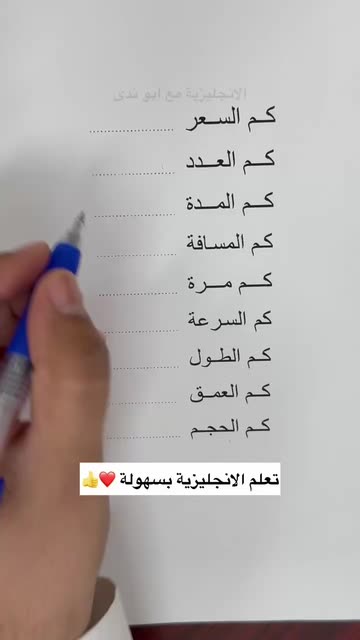 الانجليزية مع ابو ندى
كـم السـعر ........................
كـم العـدد ........................
كـم المـدة ........................
كم المسافة ........................
كـم مـرة ........................
كم السرعة ........................
كم الطـول ........................
كم العمـق ........................
كـم الحجـم ........................
تعلم الانجليزية بسهولة ❤️👍